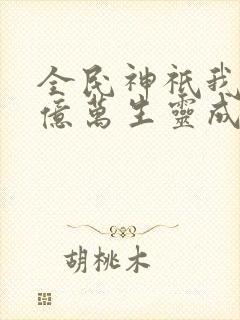 全民神祇我
億萬生靈成
胡桃木